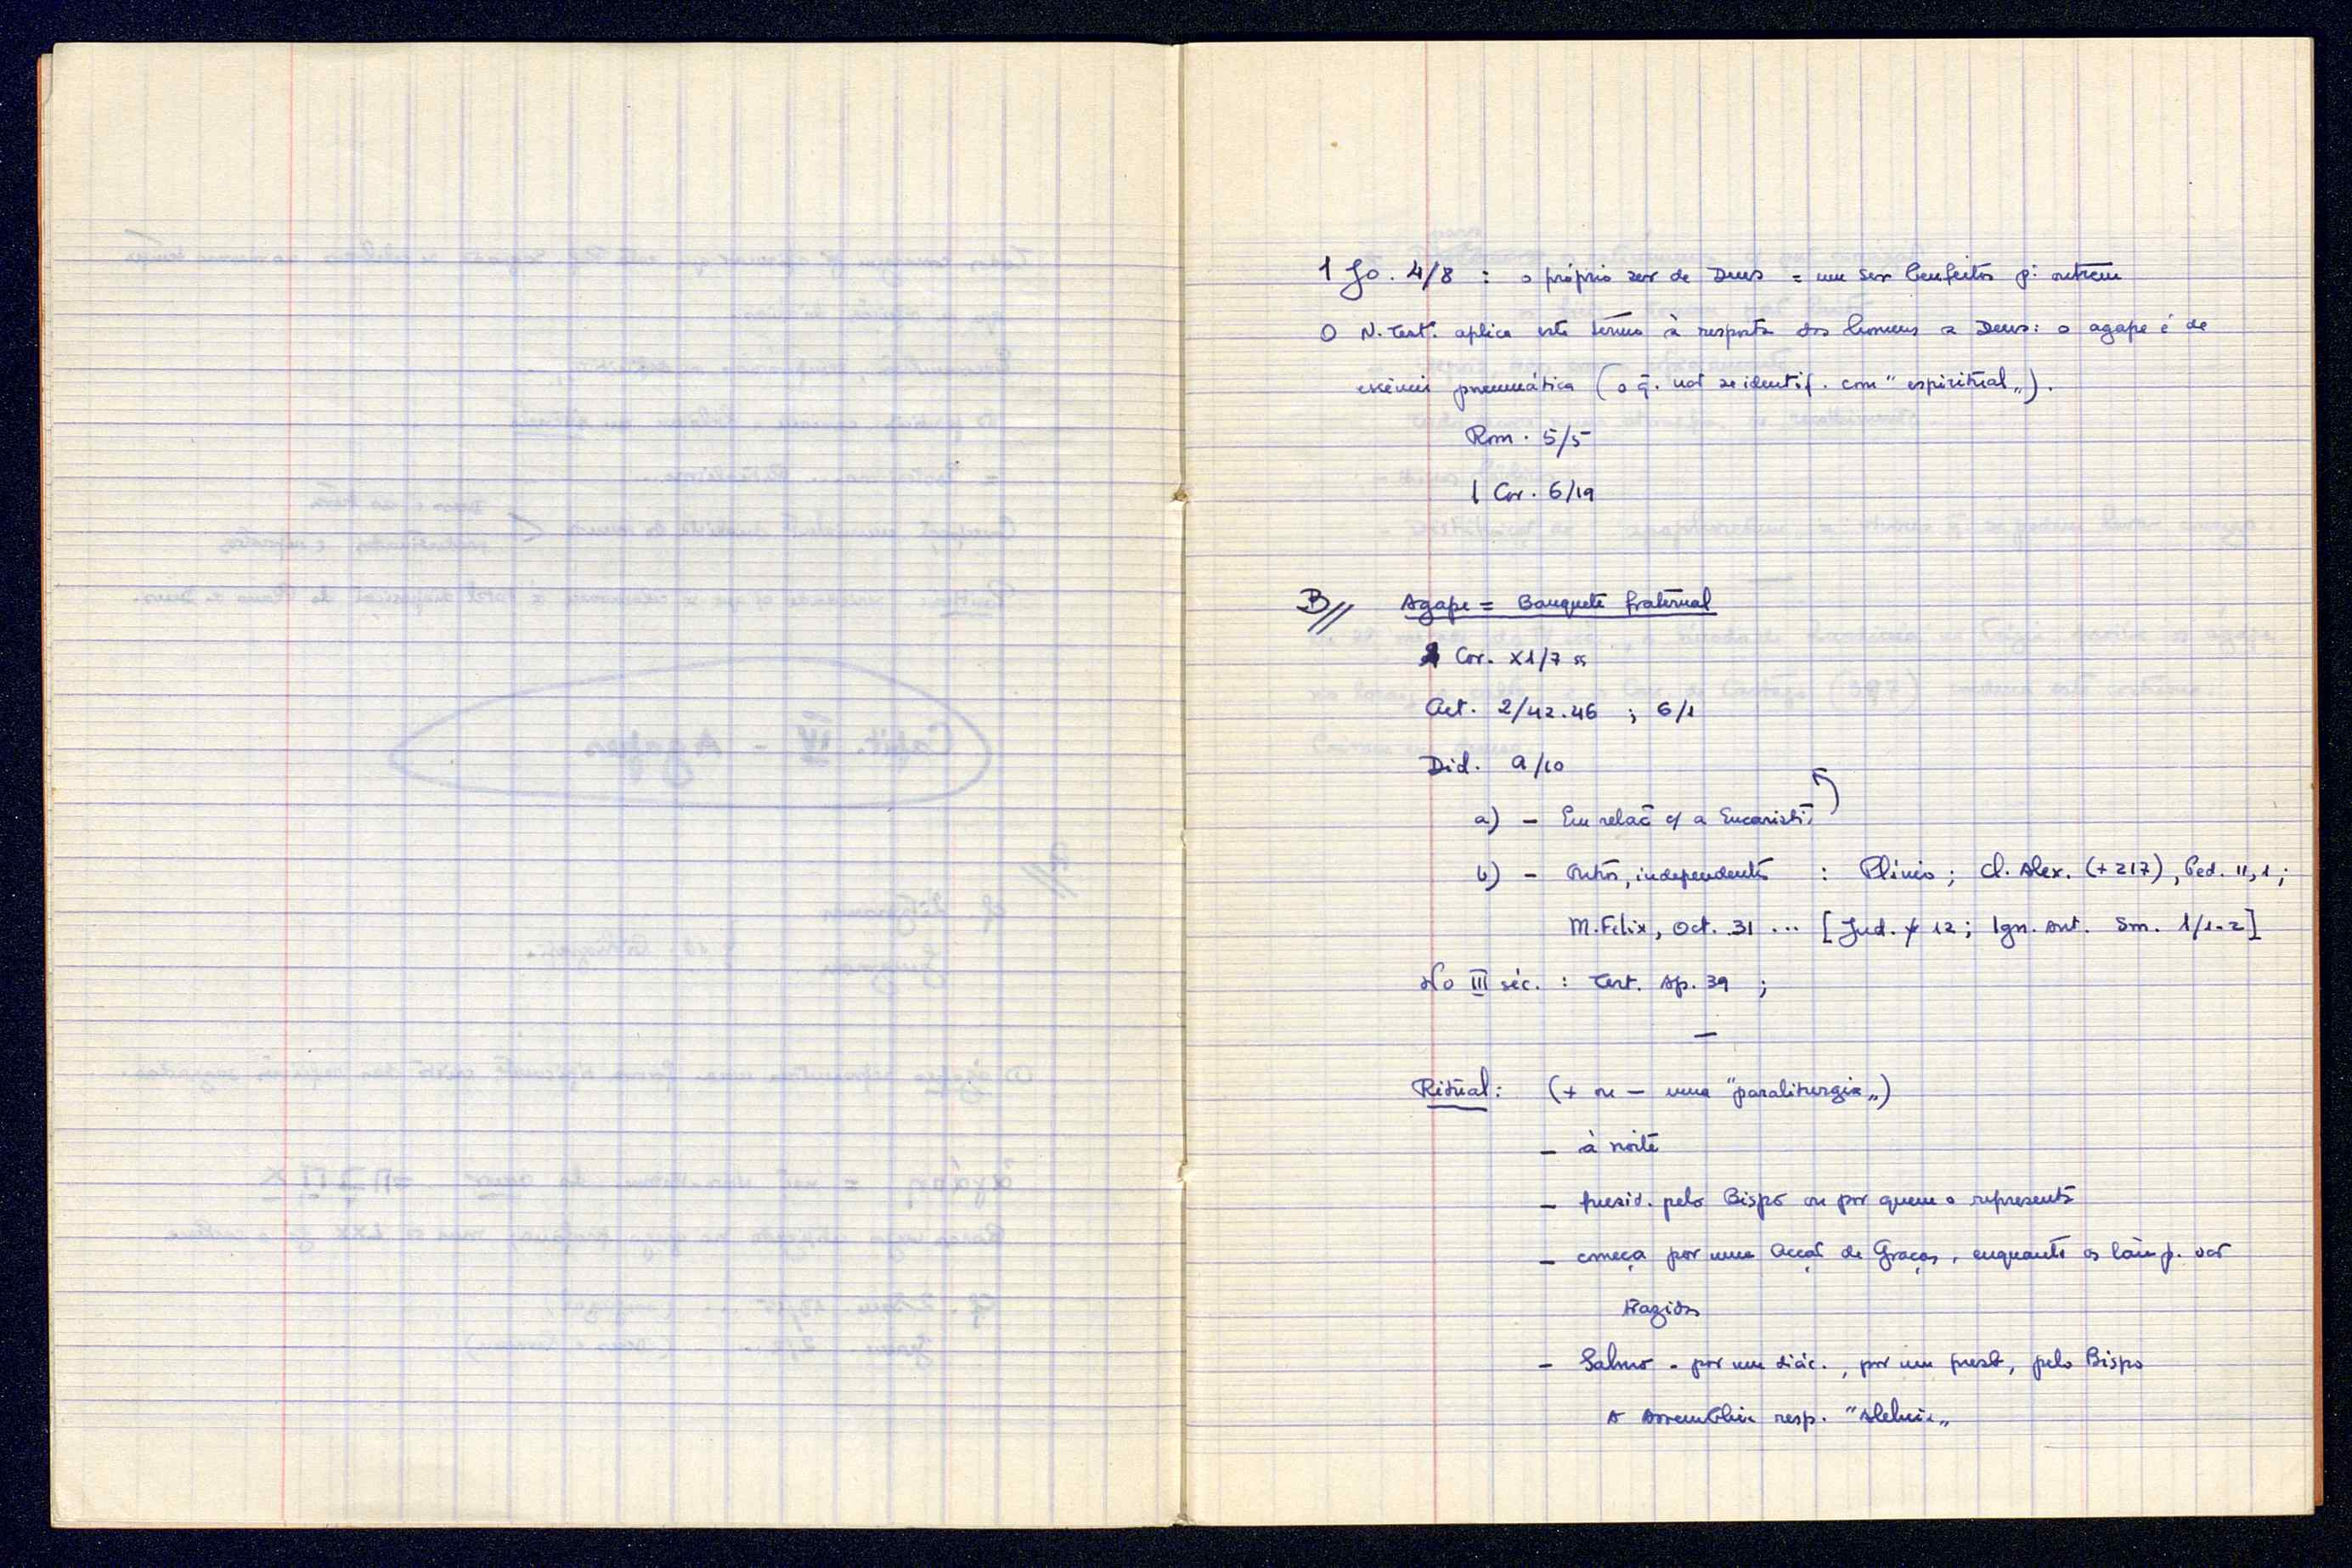 1 Jo. 4/8 : o próprio ser de Deus = um ser benfeitor p: outrem
O N. Test. aplica este têrmo à resposta dos homens a Deus: o agape é de
essência pneumática (o q. não se identif. com "espiritual„).
Rom. 5/5
1 Cor. 6/19
B// Agape = Banquete fraternal
1 Cor. X1/7 ss
Act. 2/42.46 ; 6/1
Did. 9/10
a) - Em relaç c/ a Eucaristi.
b) - Outros, independentes : Plinio; Cl. Alex. (+217), Ped. II, 1;
M. Felix, Oct. 31 ... [Jud. 12; Ign. Ant. Sm. 1/1-2]
No III séc. : Tert. Ap. 39 ;
—
Ritual: (+ ou - uma "paraliturgia„)
- à noite
- presid. pelo Bispo ou por quem o representa
- começa por uma Acção de Graças, enquanto as lâmp. são
trazidas
- Salmo - por um diác., por um presb, pelo Bispo
A Assembleia resp. "Aleluia„